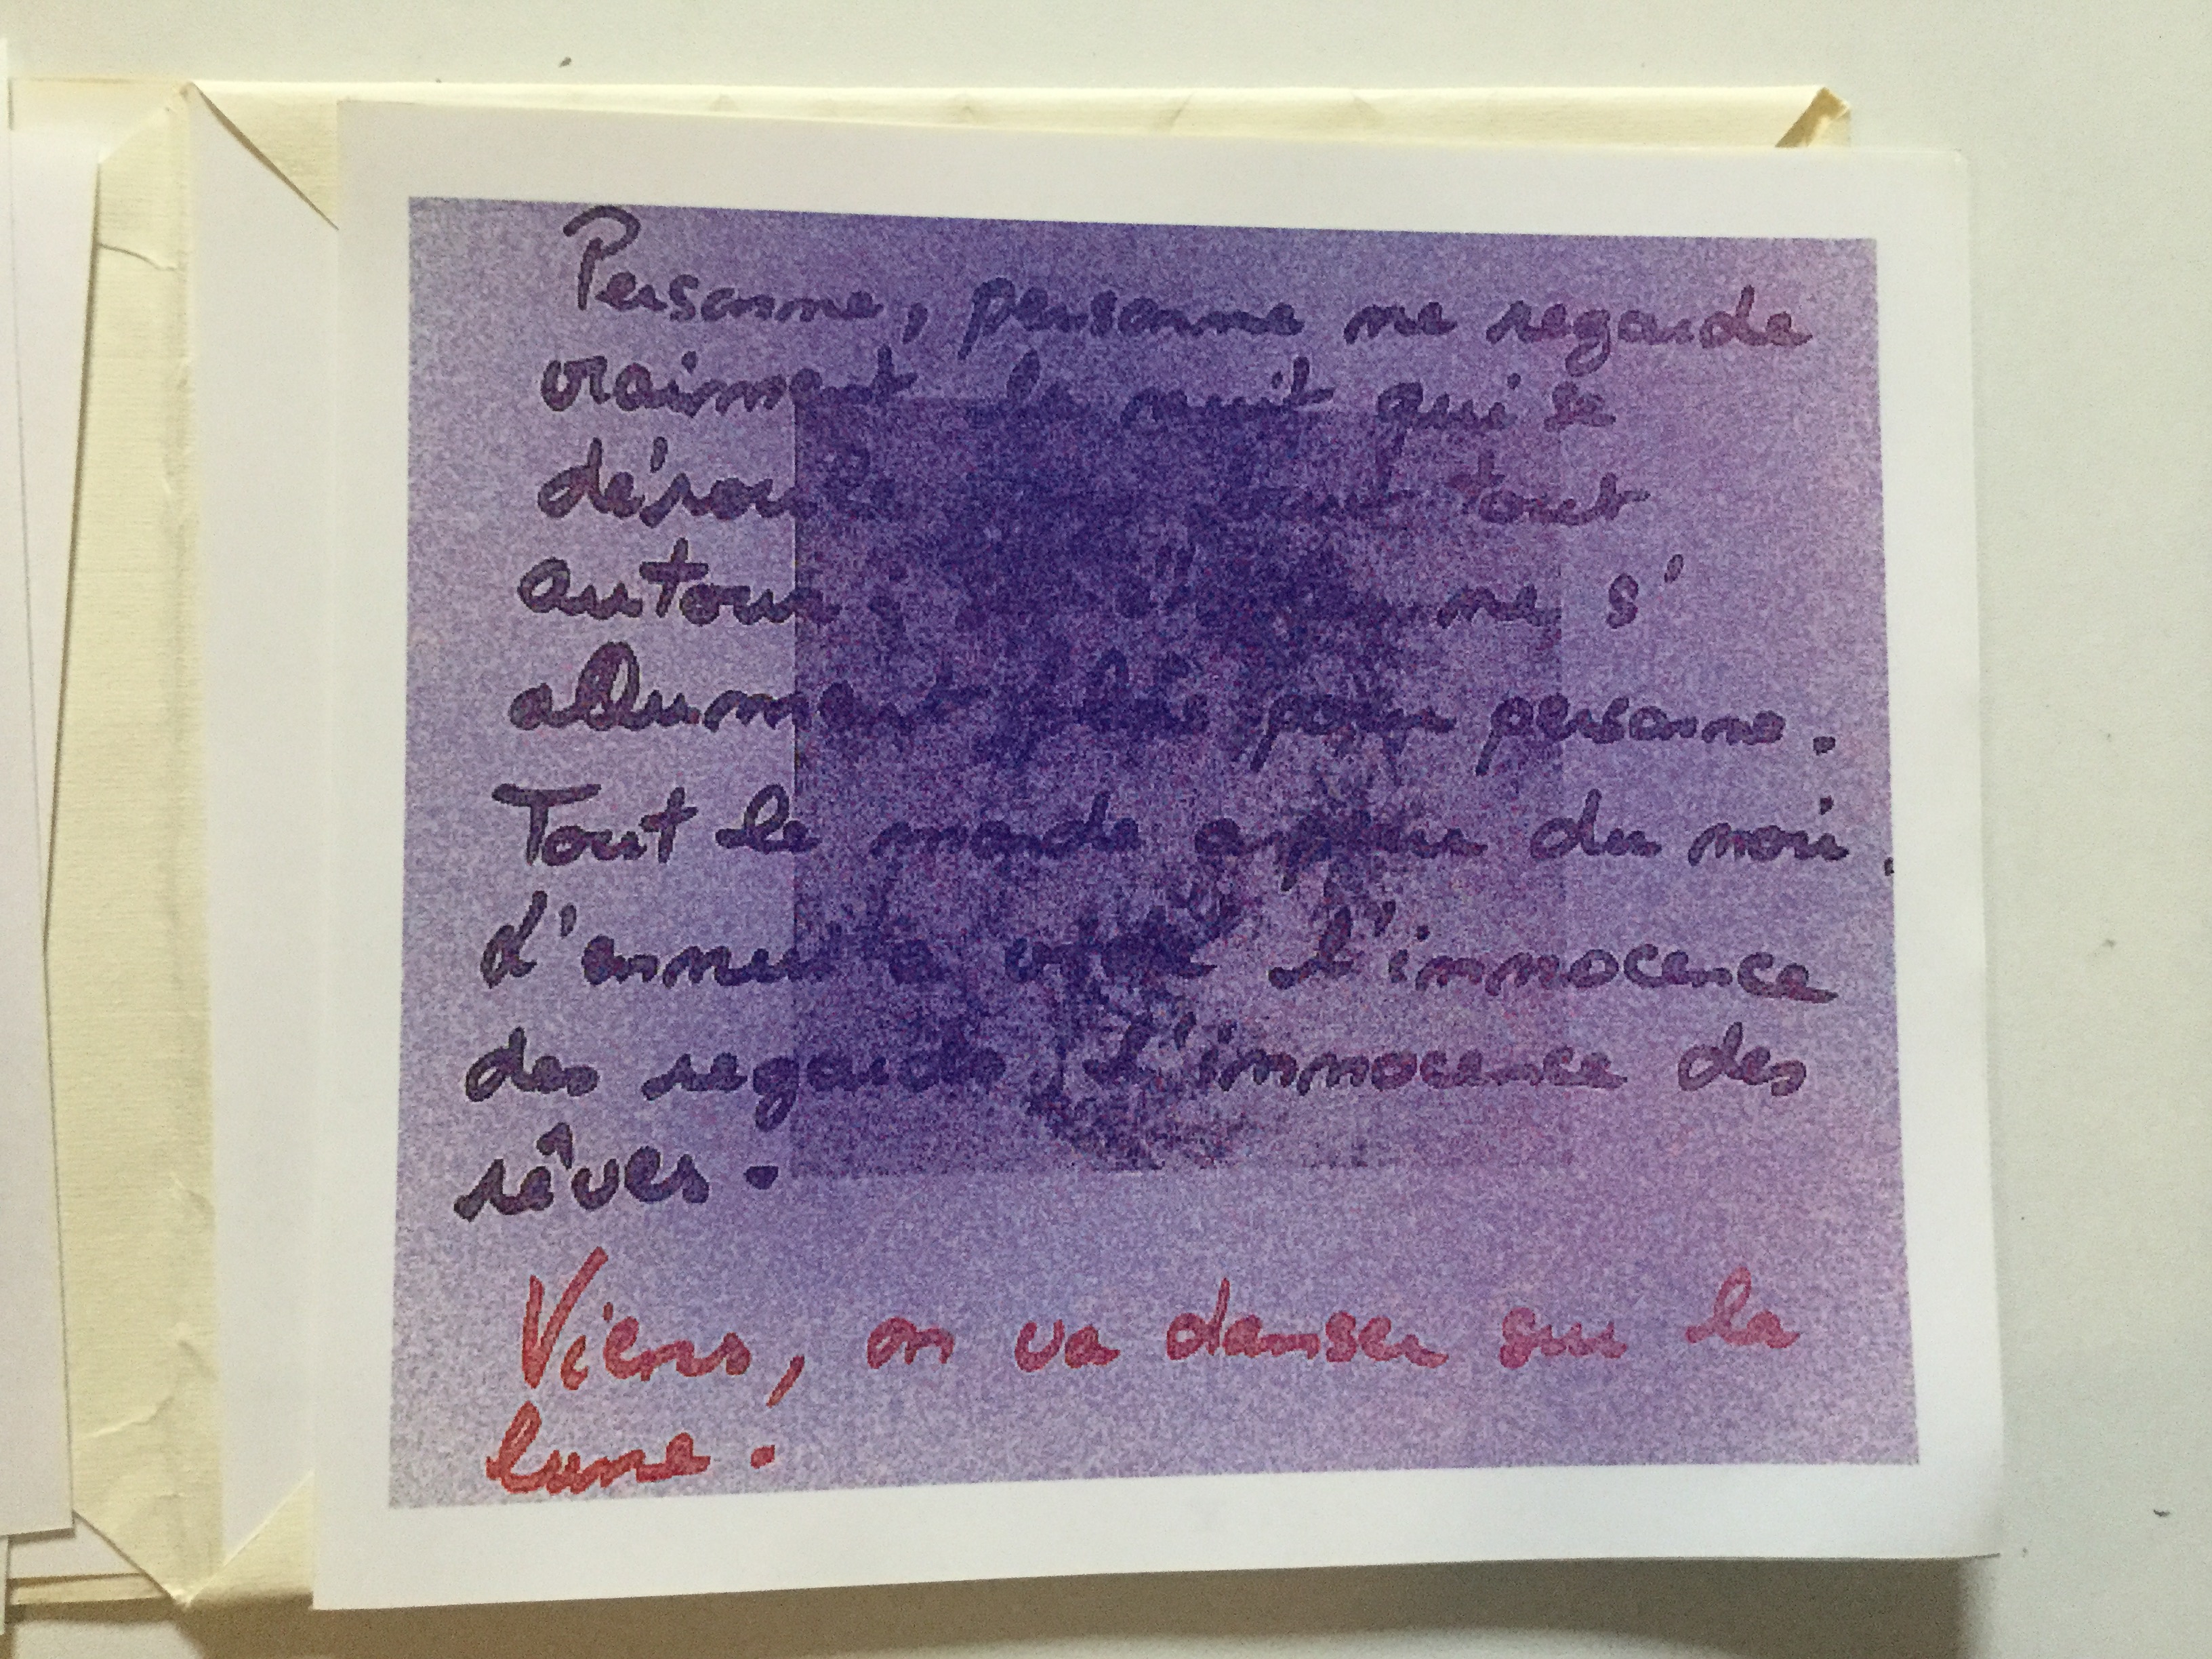 Personne, personne ne regarde
vraiment la nuit qui se
déroule tout tout
autour ne s'
allument plus pour personne.
Tout le monde a peur du noir.
L'ennemi a volé l'innocence
des regards, l'innocence des
rêves.
Viens, on va danser sur la
lune.